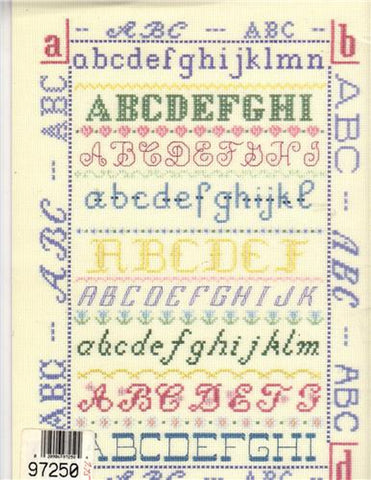 -- ABC -- ABC --
a b
abcdefghijklmn
ABCDEFGHI
ABCDEFGHI
abcdefghijkl
ABCDEF
ABCDEFGHIJK
abcdefghijklm
ABCDEFG
ABCDEFGHI
ABC --- ABC --- ABC
ABC --- ABC --- ABC
d
97250